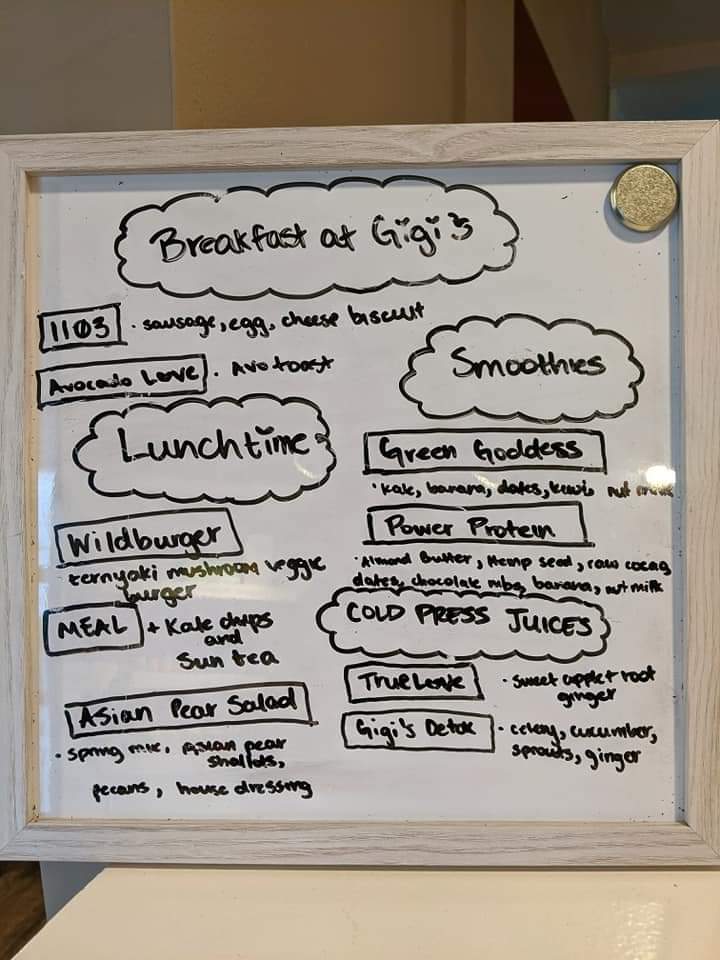 Breakfast at Gigi's
1103 · sausage, egg, cheese biscuit
Avocado Love · Avo toast
Lunchtime
Wildburger
teriyaki mushroom veggie
burger
MEAL + Kale chips
and
Sun tea
Asian Pear Salad
· spring mix, Asian pear
shallots,
pecans, house dressing
Smoothies
Green Goddess
· Kale, banana, dates, kiwi, nut milk
Power Protein
· Almond Butter, Hemp seed, raw cacao,
dates, chocolate nibs, banana, nut milk
COLD PRESS JUICES
True Love · Sweet apple + root
ginger
Gigi's Detox · celery, cucumber,
sprouts, ginger